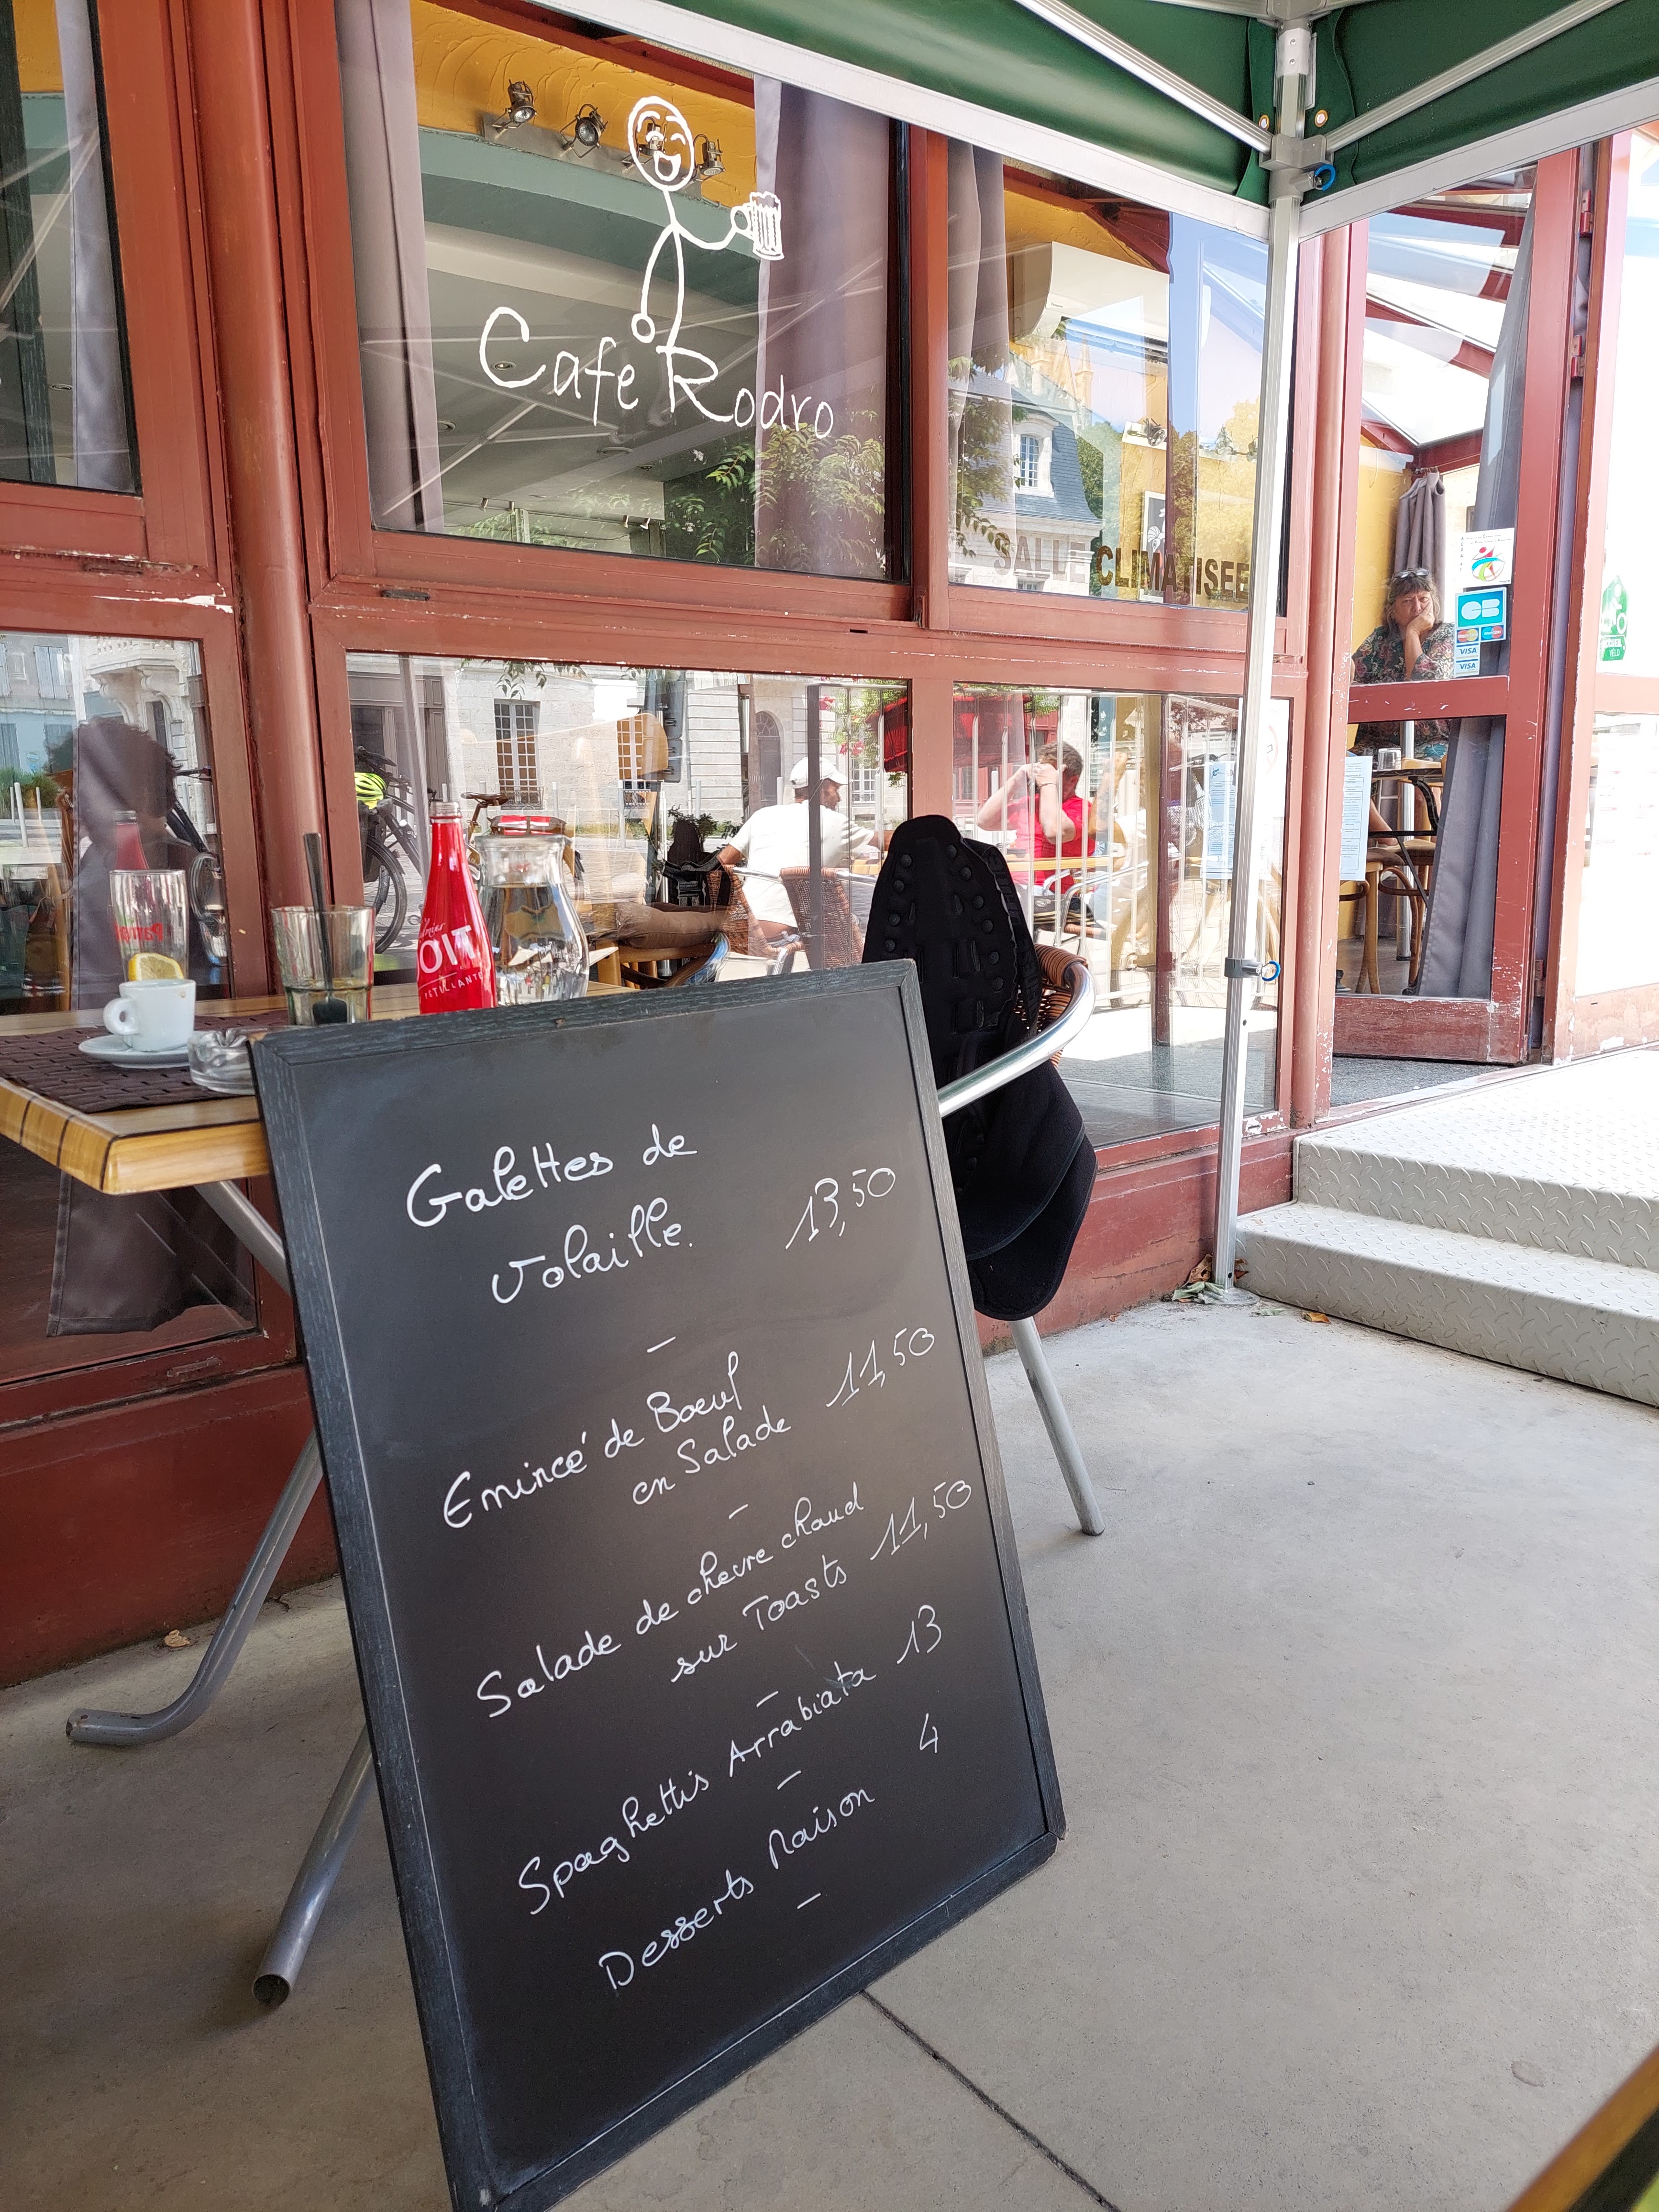 Cafe Rodro
SALLE CLIMATISEE
CB
VISA
VISA
PÉTILLANTE
Galettes de
Volaille. 13,50
-
Emincé de Boeuf 11,50
en Salade
-
Salade de chevre chaud
sur Toasts 11,50
-
Spaghettis Arrabiata 13
-
Desserts Maison 4
-